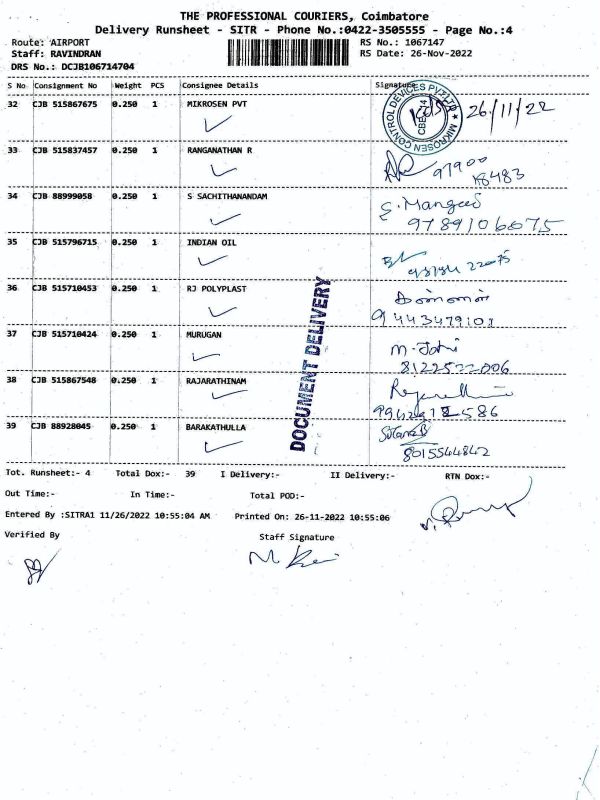 THE PROFESSIONAL COURIERS, Coimbatore
Delivery Runsheet - SITR - Phone No.:0422-3505555 - Page No.:4
Route: AIRPORT
Staff: RAVINDRAN
DRS No.: DCJB106714704
RS No.: 1067147
RS Date: 26-Nov-2022
S No Consignment No Weight PCS Consignee Details Signature
32 CJB 515867675 0.250 1 MIKROSEN PVT
MIKROSEN CONTROL DEVICES PVT LTD
26/11/22
33 CJB 515837457 0.250 1 RANGANATHAN R
97900
18483
34 CJB 88999058 0.250 1 S SACHITHANANDAM
9789106075
35 CJB 515796715 0.250 1 INDIAN OIL
36 CJB 515710453 0.250 1 RJ POLYPLAST
9443479101
37 CJB 515710424 0.250 1 MURUGAN
8122522006
38 CJB 515867548 0.250 1 RAJARATHINAM
39 CJB 88928045 0.250 1 BARAKATHULLA
8015544842
DOCUMENT DELIVERY
Tot. Runsheet:- 4 Total Dox:- 39 I Delivery:- II Delivery:- RTN Dox:-
Out Time:- In Time:- Total POD:-
Entered By :SITRA1 11/26/2022 10:55:04 AM Printed On: 26-11-2022 10:55:06
Verified By Staff Signature